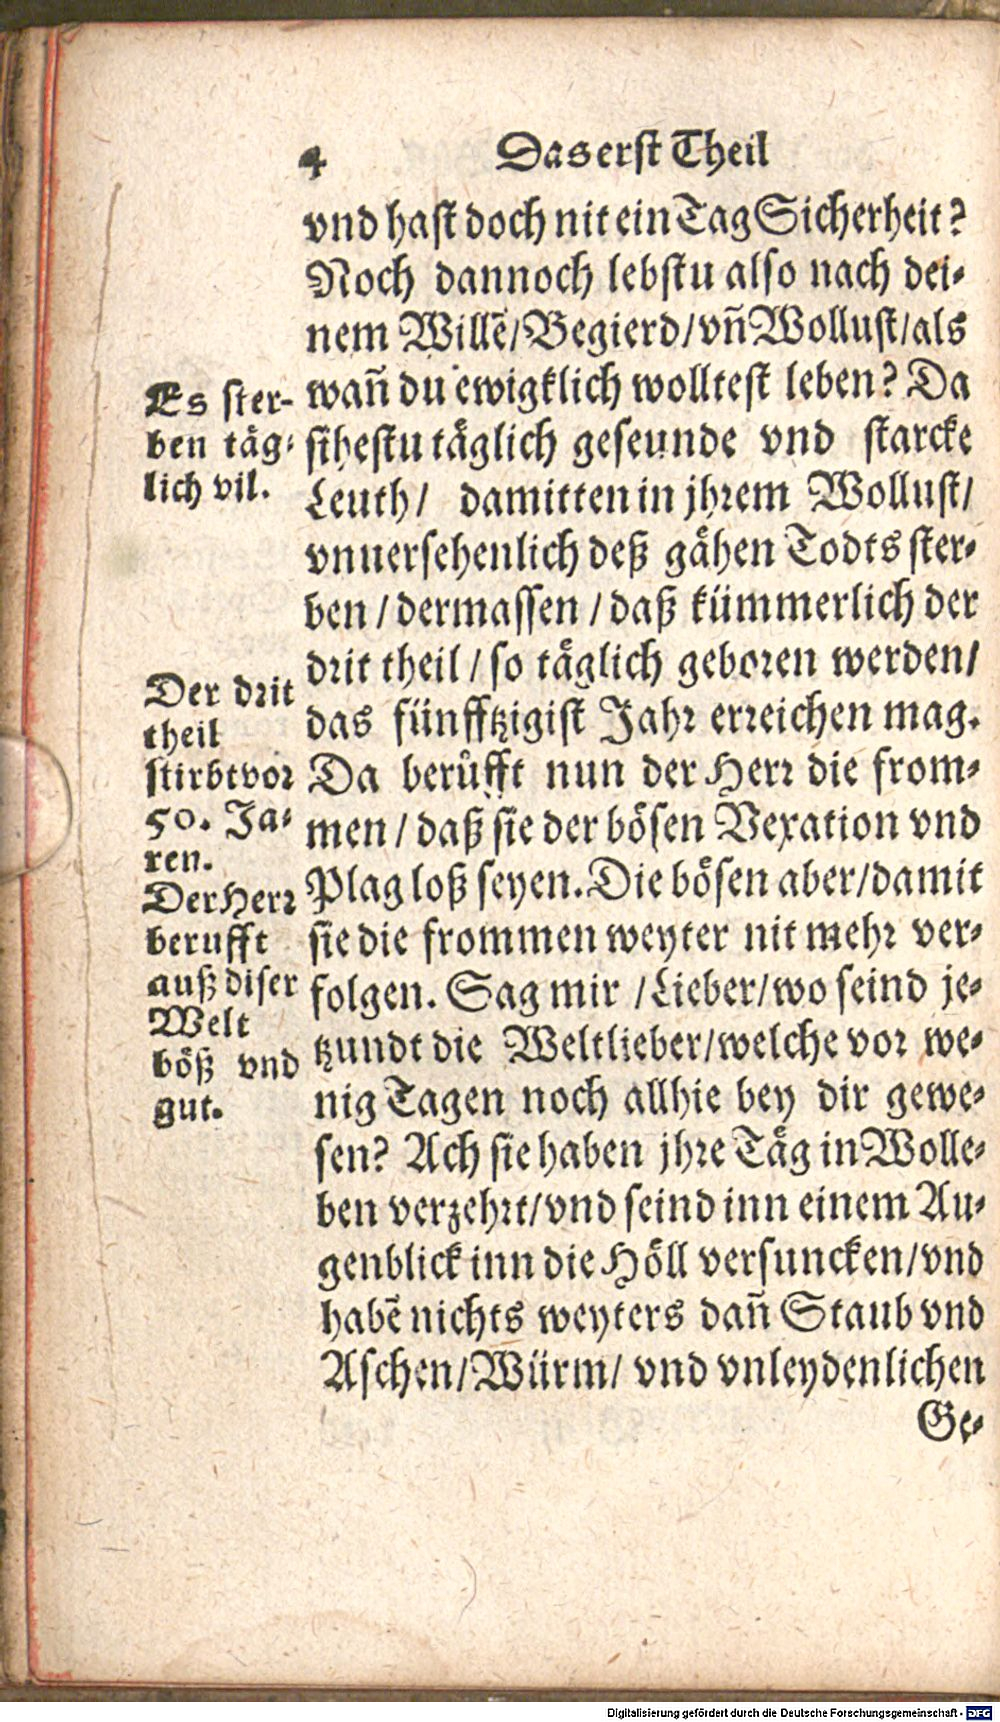 4 Das erst Theil
vnd hast doch nit ein Tag Sicherheit?
Noch dannoch lebstu also nach dei-
nem Willẽ/Begierd/vñ Wollust/als
wañ du ewigklich wolltest leben? Da
sihestu täglich geseunde vnd starcke
Leuth/ damitten in jhrem Wollust/
vnuersehenlich deß gähen Todts ster-
ben/dermassen/daß kümmerlich der
drit theil/so täglich geboren werden/
das fünfftzigist Jahr erreichen mag.
Da berüfft nun der Herr die from-
men/daß sie der bösen Vexation vnd
Plag loß seyen. Die bösen aber/damit
sie die frommen weyter nit mehr ver-
folgen. Sag mir/Lieber/wo seind je-
tzundt die Weltlieber/welche vor we-
nig Tagen noch allhie bey dir gewe-
sen? Ach sie haben jhre Täg in Wolle-
ben verzehrt/vnd seind inn einem Au-
genblick inn die Höll versuncken/vnd
habẽ nichts weyters dañ Staub vnd
Aschen/Würm/ vnd vnleydenlichen
Ge-
Es ster-
ben täg-
lich vil.
Der drit
theil
stirbt vor
50. Ja-
ren.
Der Herr
berufft
auß diser
Welt
böß vnd
gut.
Digitalisierung gefördert durch die Deutsche Forschungsgemeinschaft - DFG